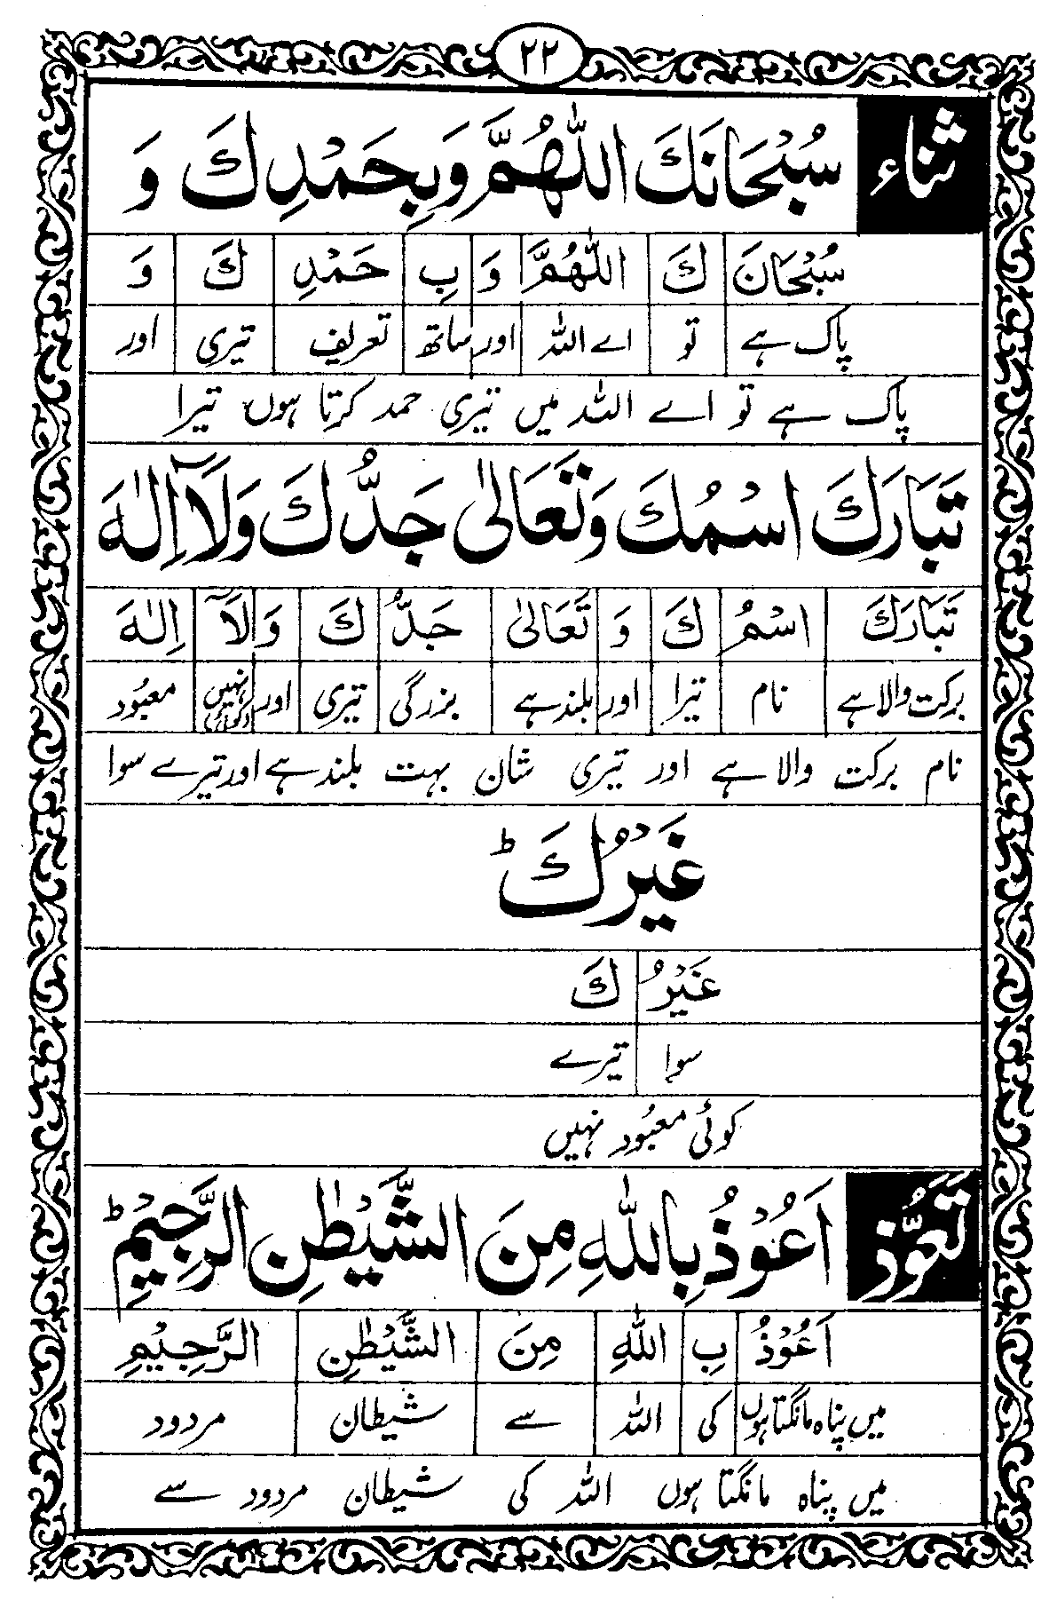 ۲۲
ثناء
سُبْحَانَكَ اللّٰهُمَّ وَبِحَمْدِكَ وَ
سُبْحَانَ كَ اللّٰهُمَّ وَ بِ حَمْدِ كَ وَ
پاک ہے تو اے اللہ اور ساتھ تعریف تیری اور
پاک ہے تو اے اللہ میں تیری حمد کرتا ہوں تیرا
تَبَارَكَ اسْمُكَ وَتَعَالٰى جَدُّكَ وَلَآ اِلٰهَ
تَبَارَكَ اسْمُ كَ وَ تَعَالٰى جَدُّ كَ وَ لَآ اِلٰهَ
برکت والا ہے نام تیرا اور بلند ہے بزرگی تیری اور نہیں معبود
نام برکت والا ہے اور تیری شان بہت بلند ہے اور تیرے سوا
غَيْرُكَ ط
غَيْرُ كَ
سوا تیرے
کوئی معبُود نہیں
تَعَوُّذ
اَعُوْذُ بِاللّٰهِ مِنَ الشَّيْطٰنِ الرَّجِيْمِ ط
اَعُوْذُ بِ اللّٰهِ مِنَ الشَّيْطٰنِ الرَّجِيْمِ
میں پناہ مانگتا ہوں کی اللہ سے شیطان مردود
میں پناہ مانگتا ہوں اللہ کی شیطان مردود سے